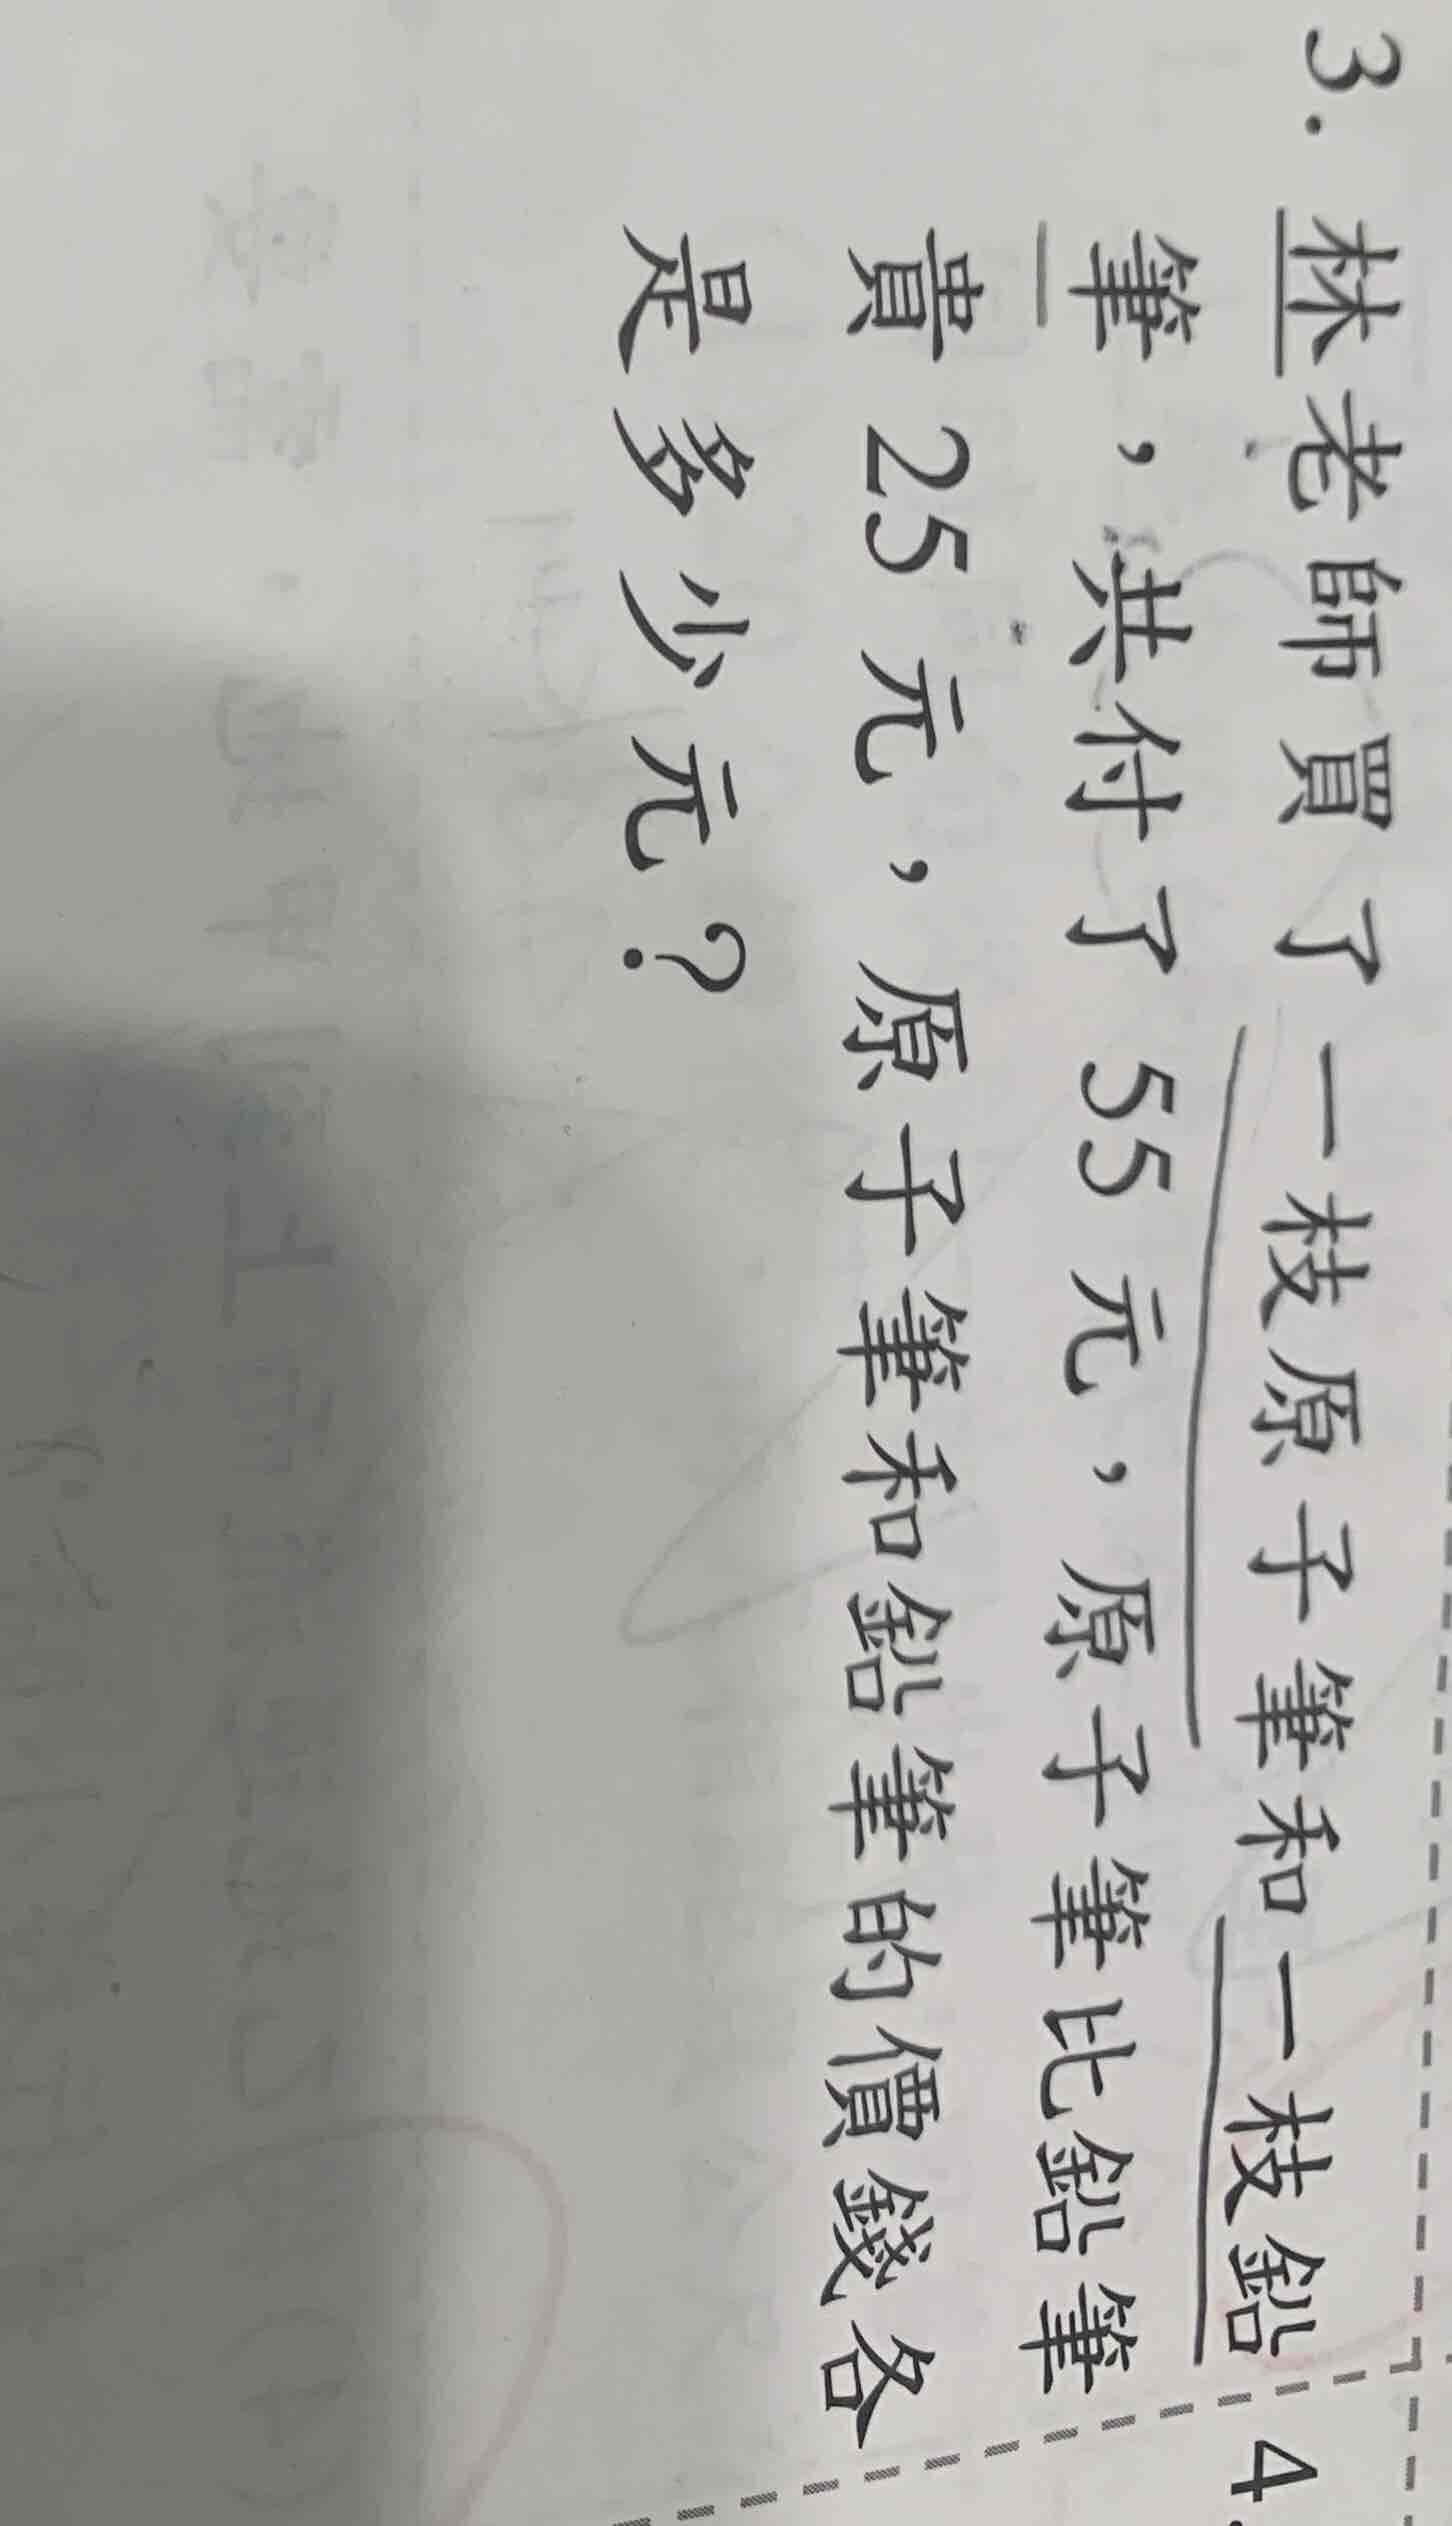 3. 林老師買了一枝原子筆和一枝鉛
筆，共付了 55 元，原子筆比鉛筆
貴 25 元，原子筆和鉛筆的價錢各
是多少元？
4.